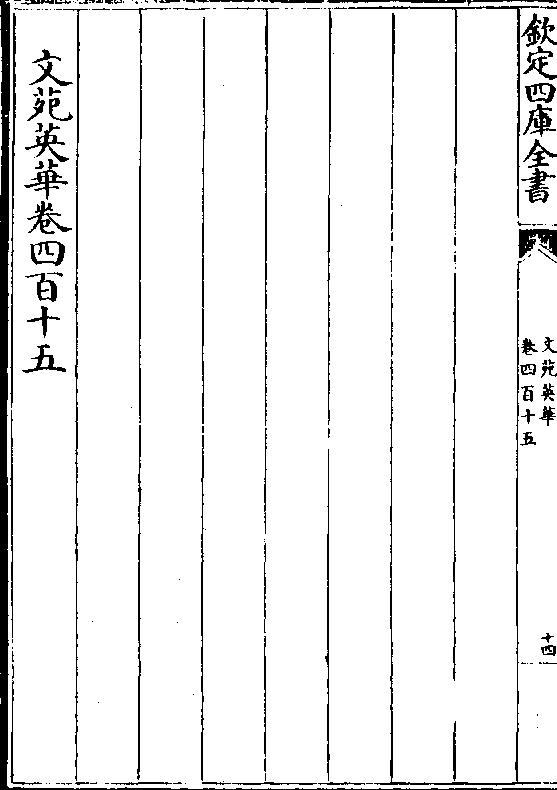 欽定四庫全書
文苑英華
卷四百十五
十四
文苑英華卷四百十五